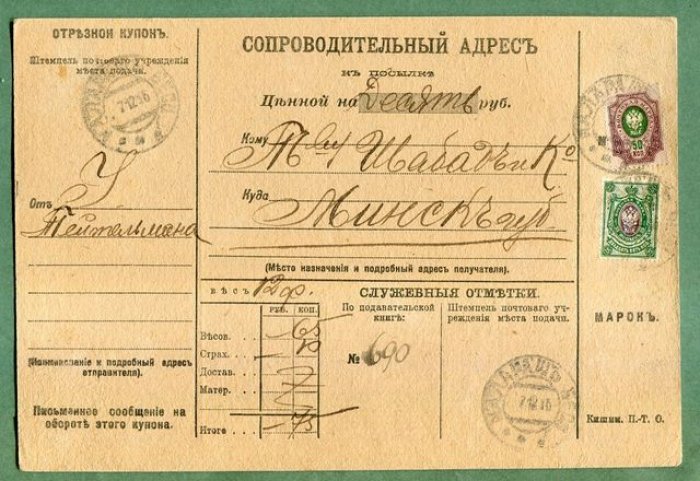 ОТРѢЗНОЙ КУПОНЪ.
Штемпель почтоваго учрежденія
мѣста подачи.
7 12 16
Отъ
Тейтельмана
(Наименованіе и подробный адресъ
отправителя).
Письменное сообщеніе на
оборотѣ этого купона.
СОПРОВОДИТЕЛЬНЫЙ АДРЕСЪ
къ посылкѣ
Цѣнной на Десять руб.
Кому
Т-ву Шабадъ и Кº
Куда
Минскъ губ
(Мѣсто назначенія и подробный адресъ получателя).
вѣсъ 12 ф.
РУБ. КОП.
Вѣсов. – 65
Страх. – 10
Достав.
Матер.
Итого – 75
СЛУЖЕБНЫЯ ОТМѢТКИ.
По подавательской
книгѣ:
№ 690
Штемпель почтоваго уч-
режденія мѣста подачи.
7 12 16
50
КОП
МАРОКЪ.
Кишин. П.-Т. О.